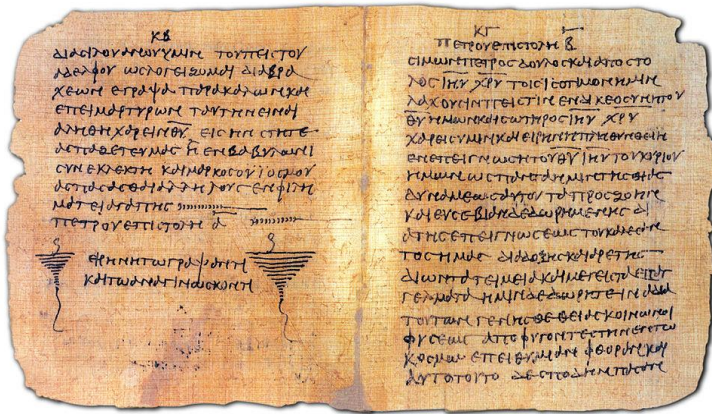 ΚΒ
ΔΙΑϹΙΛΟΥΑΝΟΥΥΜΙΝ ΤΟΥΠΙϹΤΟΥ
ΑΔΕΛΦΟΥ ΩϹΛΟΓΕΙΖΟΜΑΙ ΔΙΑΒΡΑ
ΧΕΩΝ ΕΓΡΑΨΑ ΠΑΡΑΚΑΛΩΝΚΑΙ
ΕΠΕΙΜΑΡΤΥΡΩΝ ΤΑΥΤΗΝΕΙΝΑΙ
ΑΛΗΘΗ ΧΑΡΕΙΝΘΥ ΕΙϹ ΗΝ ϹΤΗΤΕ
ΑϹΠΑΖΕΤΕΥΜΑϹ Η ΕΝΒΑΒΥΛΩΝΙ
ϹΥΝΕΚΛΕΚΤΗ ΚΑΙΜΑΡΚΟϹΟΥΙΟϹΜΟΥ
ΑϹΠΑϹΑϹΘΑΙΑΛΛΗΛΟΥϹ ΕΝΦΙΛΗ
ΜΑΤΕΙΑΓΑΠΗϹ
ΠΕΤΡΟΥΕΠΙϹΤΟΛΗ Α
ΕΙΡΗΝΗΤΩΓΡΑΨΑΝΤΙ
ΚΑΙΤΩΑΝΑΓΙΝΩϹΚΟΝΤΙ
ΚΓ
ΠΕΤΡΟΥΕΠΙϹΤΟΛΗ Β
ϹΙΜΩΝΠΕΤΡΟϹΔΟΥΛΟϹΚΑΙΑΠΟϹΤΟ
ΛΟϹ ΙΗΥ ΧΡΥ ΤΟΙϹΙϹΟΤΙΜΟΝΗΜΙΝ
ΛΑΧΟΥϹΙΝΠΕΙϹΤΙΝ ΕΝΔΙΚΕΟϹΥΝΗΤΟΥ
ΘΥ ΗΜΩΝΚΑΙϹΩΤΗΡΟϹ ΙΗΥ ΧΡΥ
ΧΑΡΕΙϹΥΜΙΝΚΑΙΕΙΡΗΝΗΠΛΗΘΥΝΘΕΙΗ
ΕΝΕΠΕΙΓΝΩϹΗΤΟΥΘΥ ΙΗΥ ΤΟΥΚΥΡΙΟΥ
ΗΜΩΝ ΩϹΠΑΝΤΑΗΜΙΝΤΗϹΘΕΙΑϹ
ΔΥΝΑΜΕΩϹΑΥΤΟΥ ΤΑΠΡΟϹΖΩΗΝ
ΚΑΙΕΥϹΕΒΙΑΝΔΕΔΩΡΗΜΕΝΗϹ ΔΙ
ΑΤΗϹΕΠΕΙΓΝΩϹΕΩϹΤΟΥΚΑΛΕϹΑΝ
ΤΟϹΗΜΑϹ ΔΙΑΔΟΞΗϹΚΑΙΑΡΕΤΗϹ
ΔΙΩΝΤΑΤΕΙΜΕΙΑΚΑΙΜΕΓΕΙϹΤΑΕΠΑΓ
ΓΕΛΜΑΤΑ ΗΜΙΝΔΕΔΩΡΗΤΕΙΝΑΔΙΑ
ΤΟΥΤΩΝ ΓΕΝΗϹΘΕΘΕΙΑϹΚΟΙΝΩΝΟΙ
ΦΥϹΕΩϹ ΑΠΟΦΥΓΟΝΤΕϹΤΗΝΕΝΤΩ
ΚΟϹΜΩ ΕΠΕΙΘΥΜΙΑΝ ΦΘΟΡΑϹΚΑΙ
ΑΥΤΟΤΟΥΤΟ ΔΕϹΠΟΔΗΝΠΑϹΑΝ